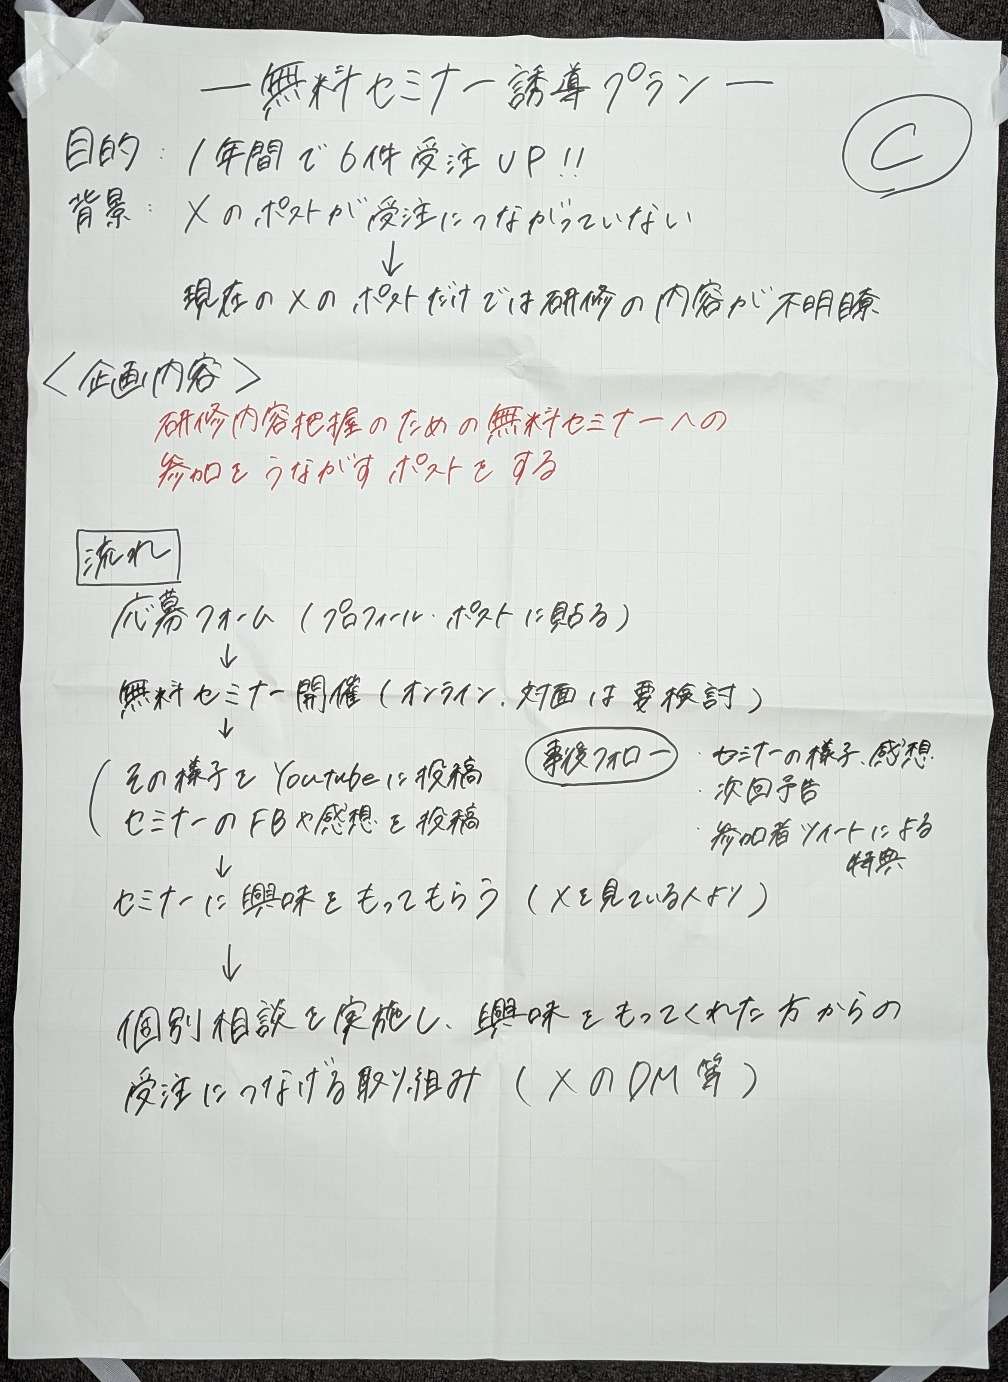 ー無料セミナー誘導プランー
C
目的：1年間で6件受注UP!!
背景：Xのポストが受注につながっていない
↓
現在のXのポストだけでは研修の内容が不明瞭
＜企画内容＞
研修内容把握のための無料セミナーへの
参加をうながすポストをする
流れ
応募フォーム（プロフィール・ポストに貼る）
↓
無料セミナー開催（オンライン、対面は要検討）
↓
その様子をYoutubeに投稿
セミナーのFBや感想を投稿
事後フォロー
・セミナーの様子、感想
・次回予告
・参加者ツイートによる
特典
↓
セミナーに興味をもってもらう（Xを見ている人より）
↓
個別相談を実施し、興味をもってくれた方からの
受注につなげる取り組み（XのDM等）